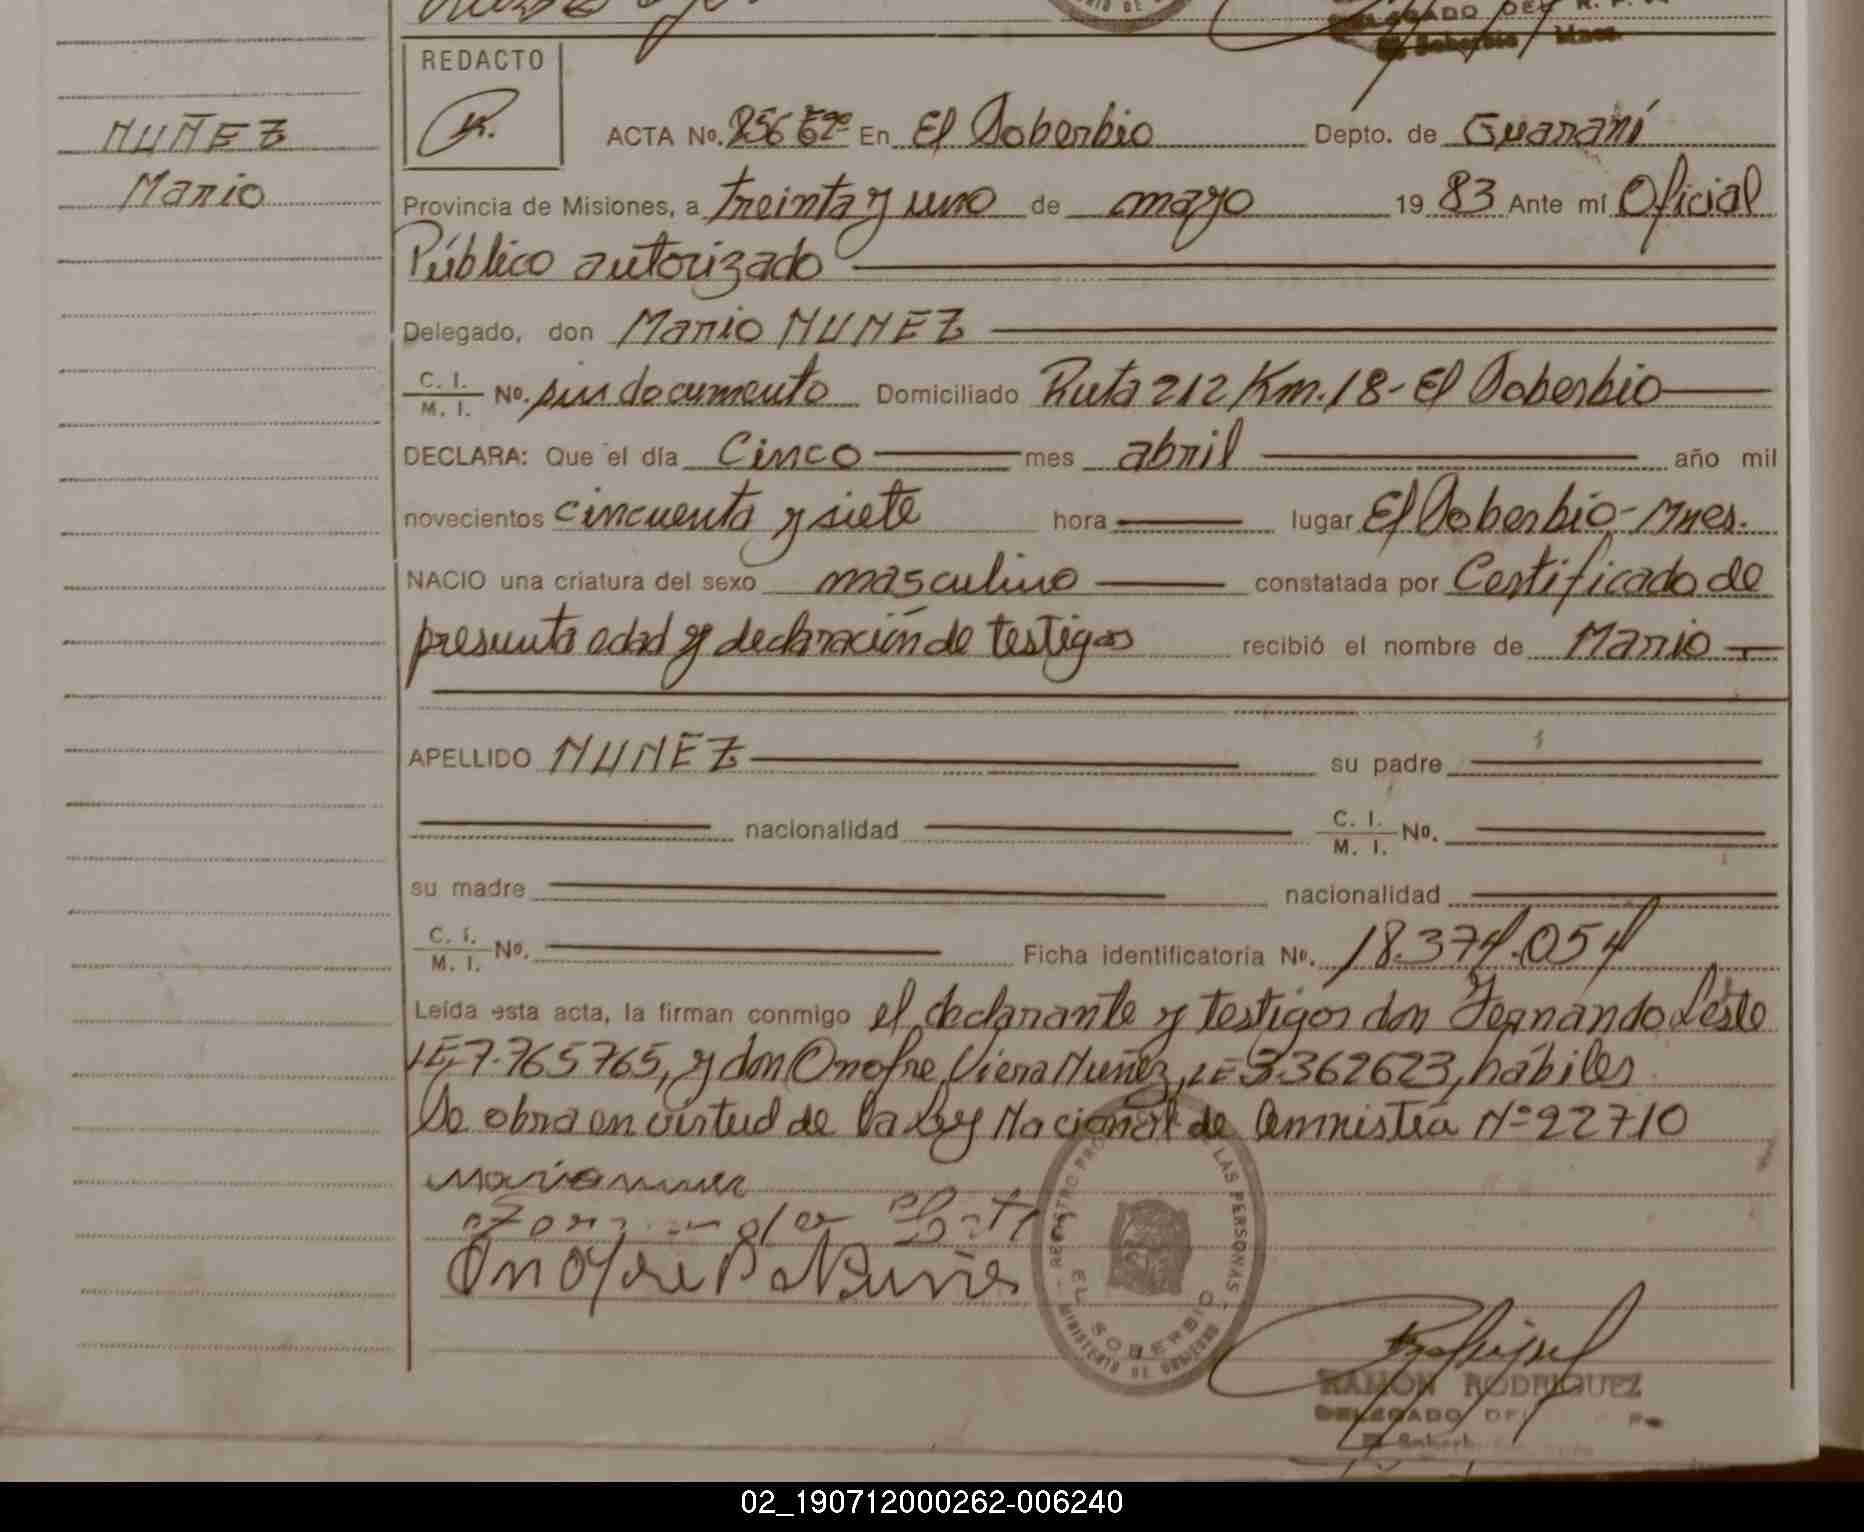 DELEGADO DEL R. P.
El Soberbio Mnes.
REDACTO
NUÑEZ
Mario
ACTA No. 256 En El Soberbio Depto. de Guaraní
Provincia de Misiones, a treinta y uno de mayo 19 83 Ante mí Oficial
Público autorizado
Delegado, don Mario NUNEZ
C. I. / M. I. No. sin documento Domiciliado Ruta 212 Km. 18 - El Soberbio
DECLARA: Que el día Cinco mes abril año mil
novecientos cincuenta y siete hora lugar El Soberbio - Mnes.
NACIO una criatura del sexo masculino constatada por Certificado de
presunta edad y declaración de testigos recibió el nombre de Mario
APELLIDO NUNEZ su padre
nacionalidad C. I. / M. I. No.
su madre nacionalidad
C. I. / M. I. No. Ficha identificatoria No. 18.374.054
Leída esta acta, la firman conmigo el declarante y testigos don Fernando Leste
LE 7.765765, y don Onofre Viera Nuñez, LE 3362623, hábiles
Se obra en virtud de la Ley Nacional de Amnistía Nº 22710
REGISTRO LAS PERSONAS
EL SOBERBIO
MINISTERIO DE GOBIERNO
RAMON RODRIGUEZ
DELEGADO DEL
02_190712000262-006240